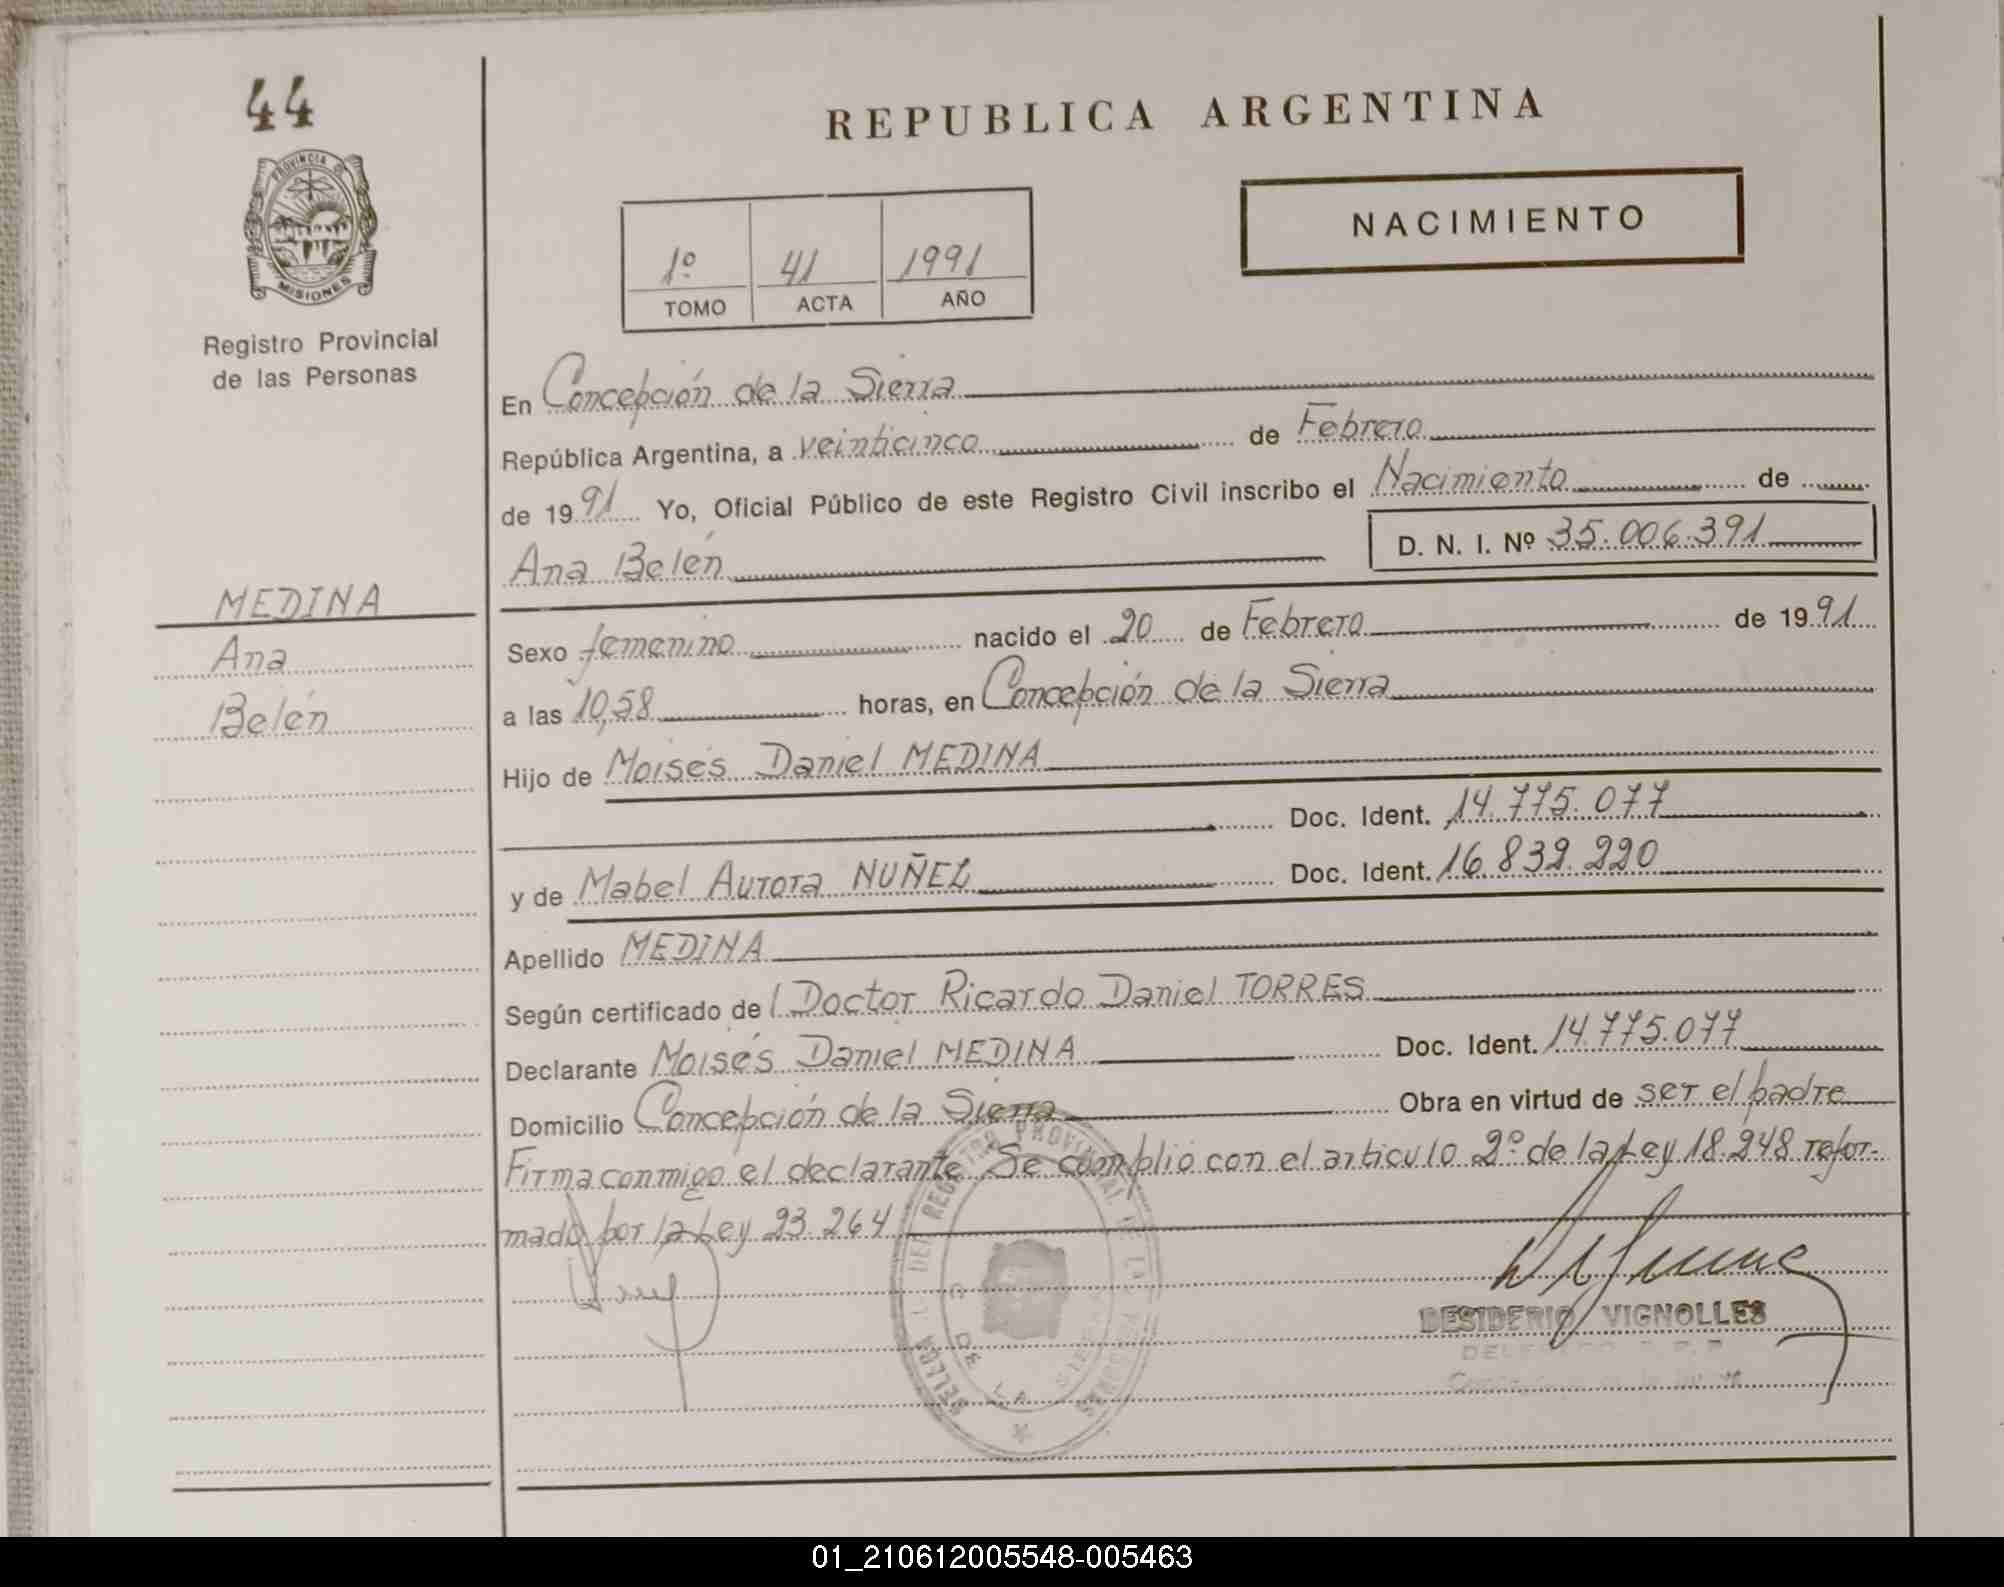 44
PROVINCIA DE
MISIONES
Registro Provincial
de las Personas
MEDINA
Ana
Belén
REPUBLICA ARGENTINA
NACIMIENTO
1º 41 1991
TOMO ACTA AÑO
En Concepción de la Sierra
República Argentina, a veinticinco de Febrero
de 1991 Yo, Oficial Público de este Registro Civil inscribo el Nacimiento de
Ana Belén D. N. I. Nº 35.006.391
Sexo femenino nacido el 20 de Febrero de 1991
a las 10,58 horas, en Concepción de la Sierra
Hijo de Moisés Daniel MEDINA
Doc. Ident. 14.775.077
y de Mabel Aurora NUÑEZ Doc. Ident. 16.832.220
Apellido MEDINA
Según certificado del Doctor Ricardo Daniel TORRES
Declarante Moisés Daniel MEDINA Doc. Ident. 14.775.077
Domicilio Concepción de la Sierra Obra en virtud de ser el padre
Firma conmigo el declarante. Se cumplió con el artículo 2º de la Ley 18.248 refor-
mado por la Ley 23.264
DESIDERIO VIGNOLLES
01_210612005548-005463